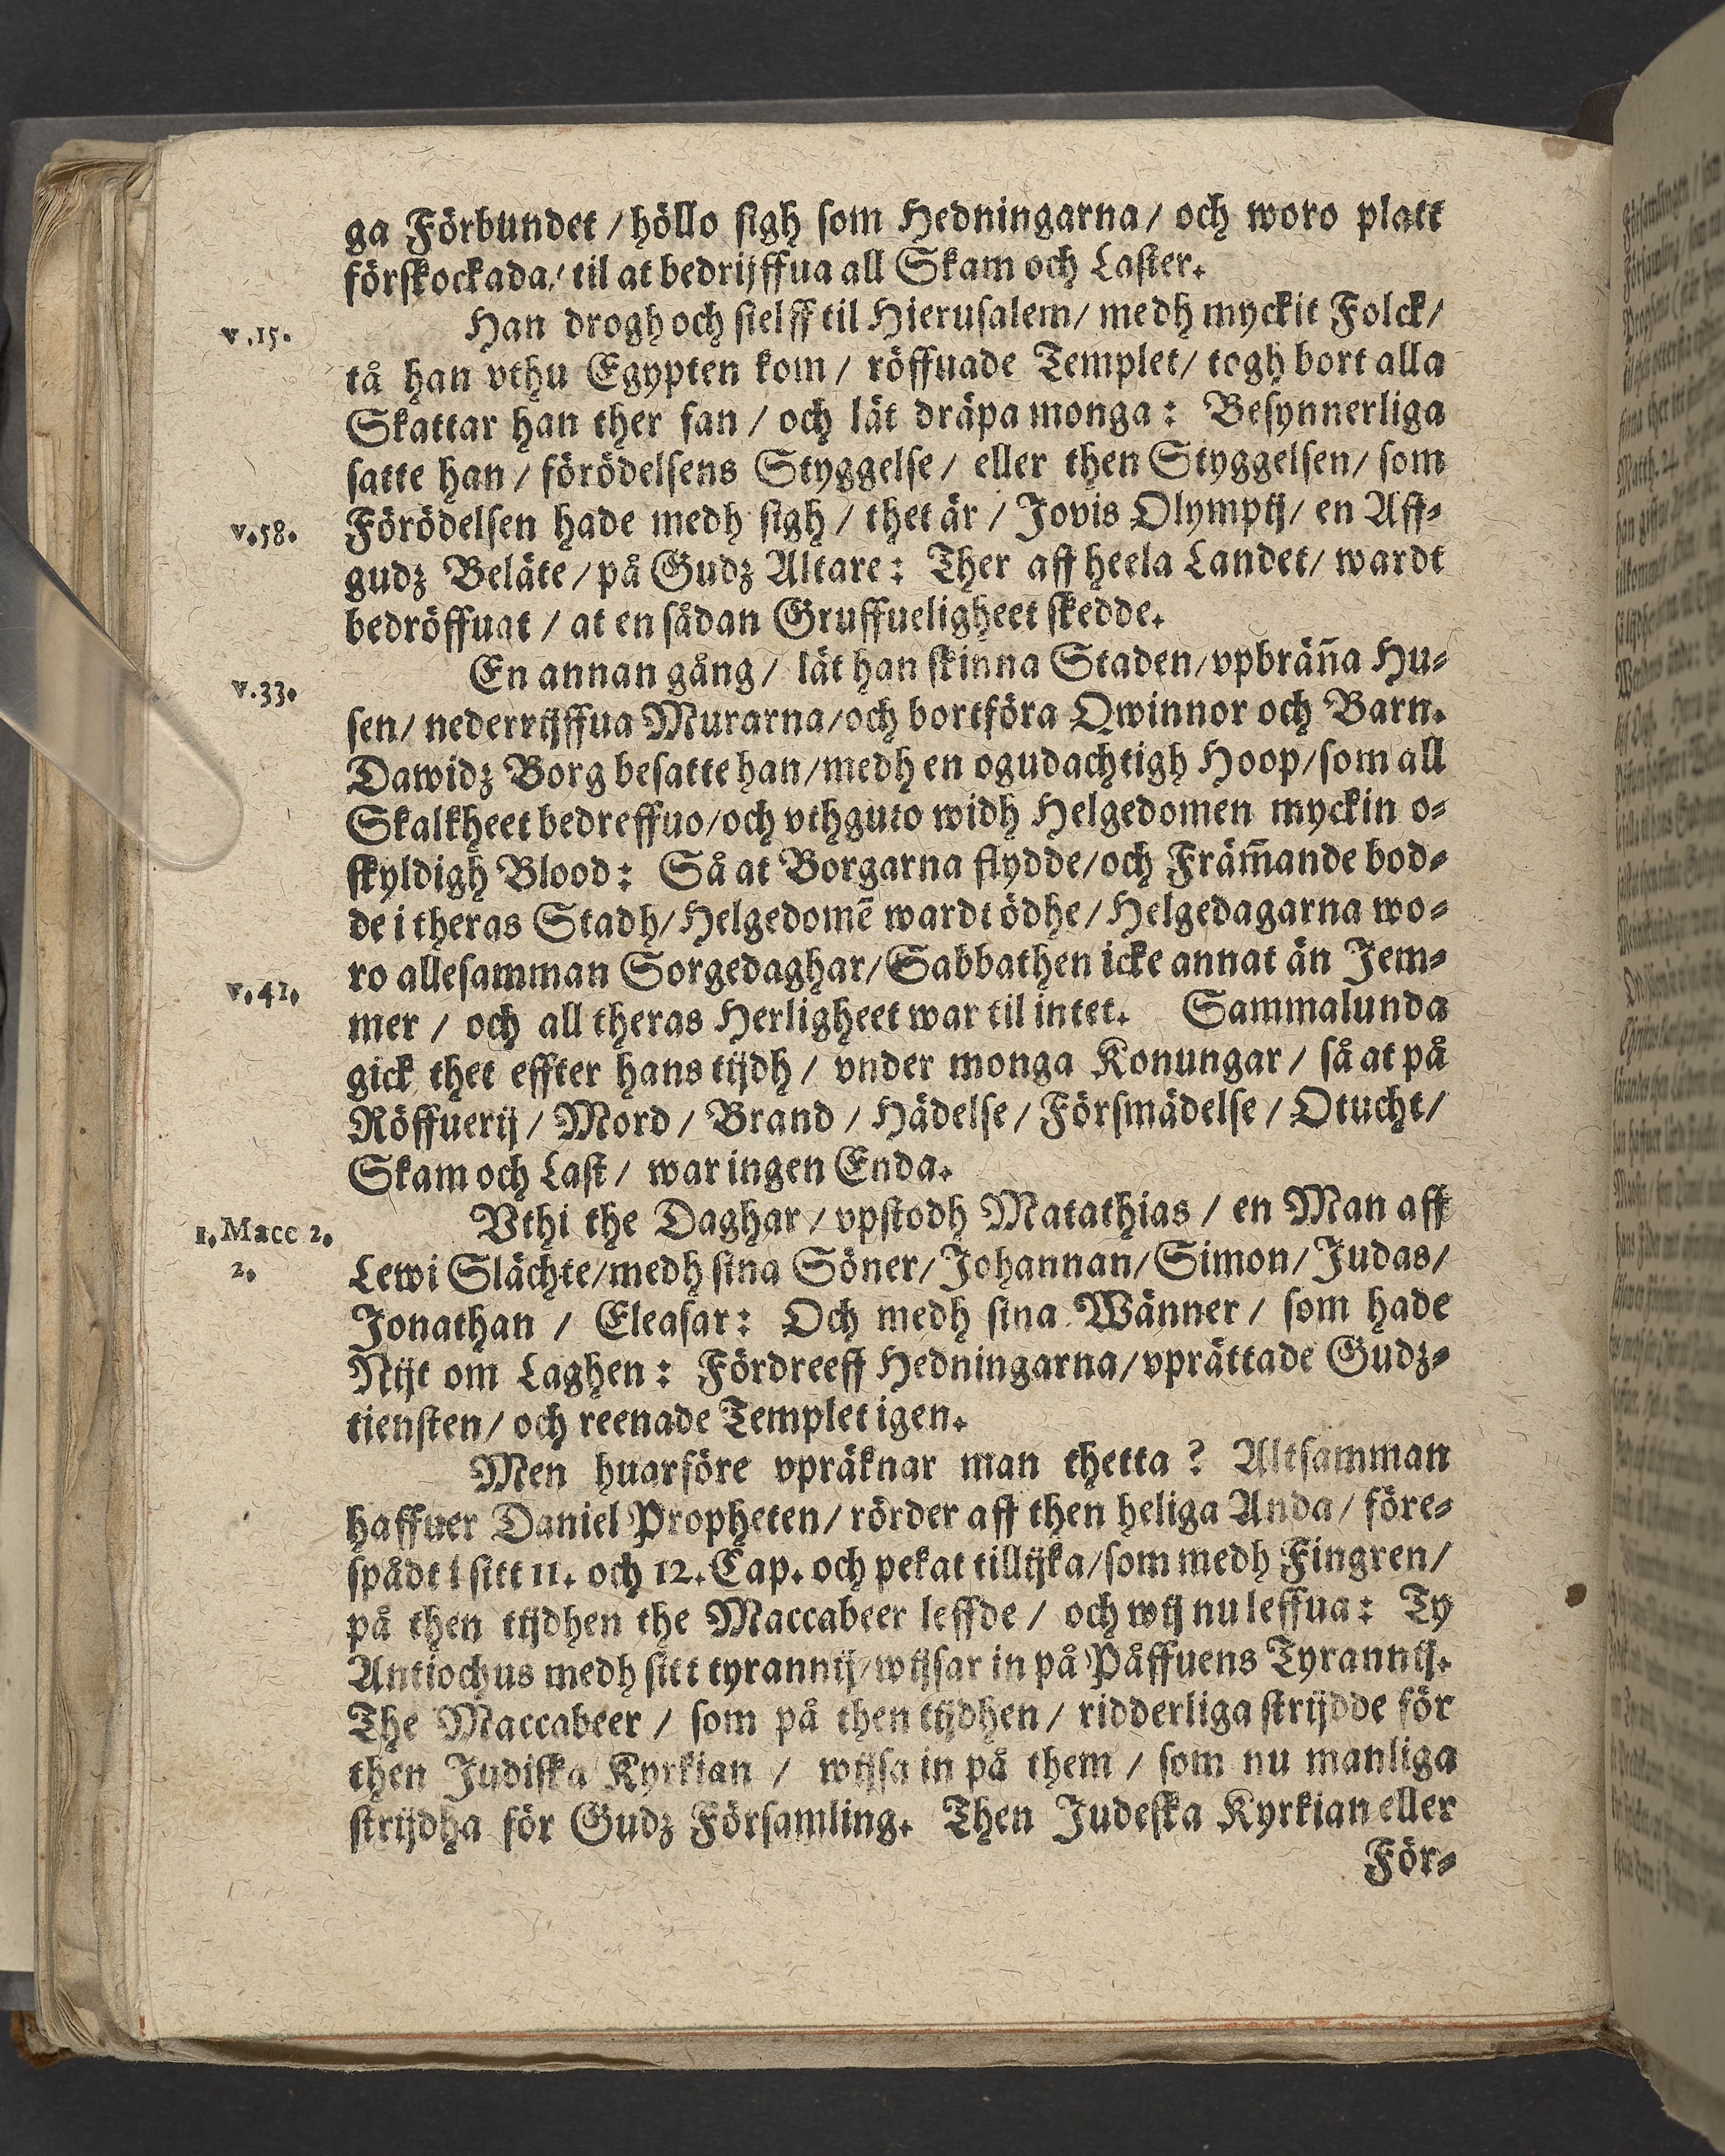 ga Förbundet / höllo sigh som Hedningarna / och woro platt
förskockada / til at bedrijffua all Skam och Laster.
v.15.
Han drogh och sielff til Hierusalem / medh myckit Folck /
tå han vthu Egypten kom / röffuade Templet / togh bort alla
Skattar han ther fan / och lät dräpa monga: Besynnerliga
satte han / förödelsens Styggelse / eller then Styggelsen / som
v.58.
Förödelsen hade medh sigh / thet är / Jovis Olympij / en Aff-
gudz Beläte / på Gudz Altare: Ther aff heela Landet / wardt
bedröffuat / at en sådan Gruffueligheet skedde.
En annan gång / lät han skinna Staden / vpbrän̄a Hu-
v.33.
sen / nederrijffua Murarna / och bortföra Qwinnor och Barn.
Dawidz Borg besatte han / medh en ogudachtigh Hoop / som all
Skalkheet bedreffuo / och vthguto widh Helgedomen myckin o-
skyldigh Blood: Så at Borgarna flydde / och Främ̄ande bod-
de i theras Stadh / Helgedomē wardt ödhe / Helgedagarna wo-
ro allesamman Sorgedaghar / Sabbathen icke annat än Jem-
v.41.
mer / och all theras Herligheet war til intet. Sammalunda
gick thet effter hans tijdh / vnder monga Konungar / så at på
Röffuerij / Mord / Brand / Hädelse / Försmädelse / Otucht /
Skam och Last / war ingen Enda.
Vthi the Daghar / vpstodh Matathias / en Man aff
1. Macc 2.
2.
Lewi Slächte / medh sina Söner / Johannan / Simon / Judas /
Jonathan / Eleasar: Och medh sina Wänner / som hade
Nijt om Laghen: Fördreeff Hedningarna / vprättade Gudz-
tiensten / och reenade Templet igen.
Men huarföre vpräknar man thetta? Altsamman
haffuer Daniel Propheten / rörder aff then heliga Anda / före-
spådt i sitt 11. och 12. Cap. och pekat tillijka / som medh Fingren /
på then tijdhen the Maccabeer leffde / och wij nu leffua: Ty
Antiochus medh sitt tyrannij / wijsar in på Påffuens Tyrannij.
The Maccabeer / som på then tijdhen / ridderliga strijdde för
then Judiska Kyrkian / wijsa in på them / som nu manliga
strijdha för Gudz Församling. Then Judeska Kyrkian eller
För-